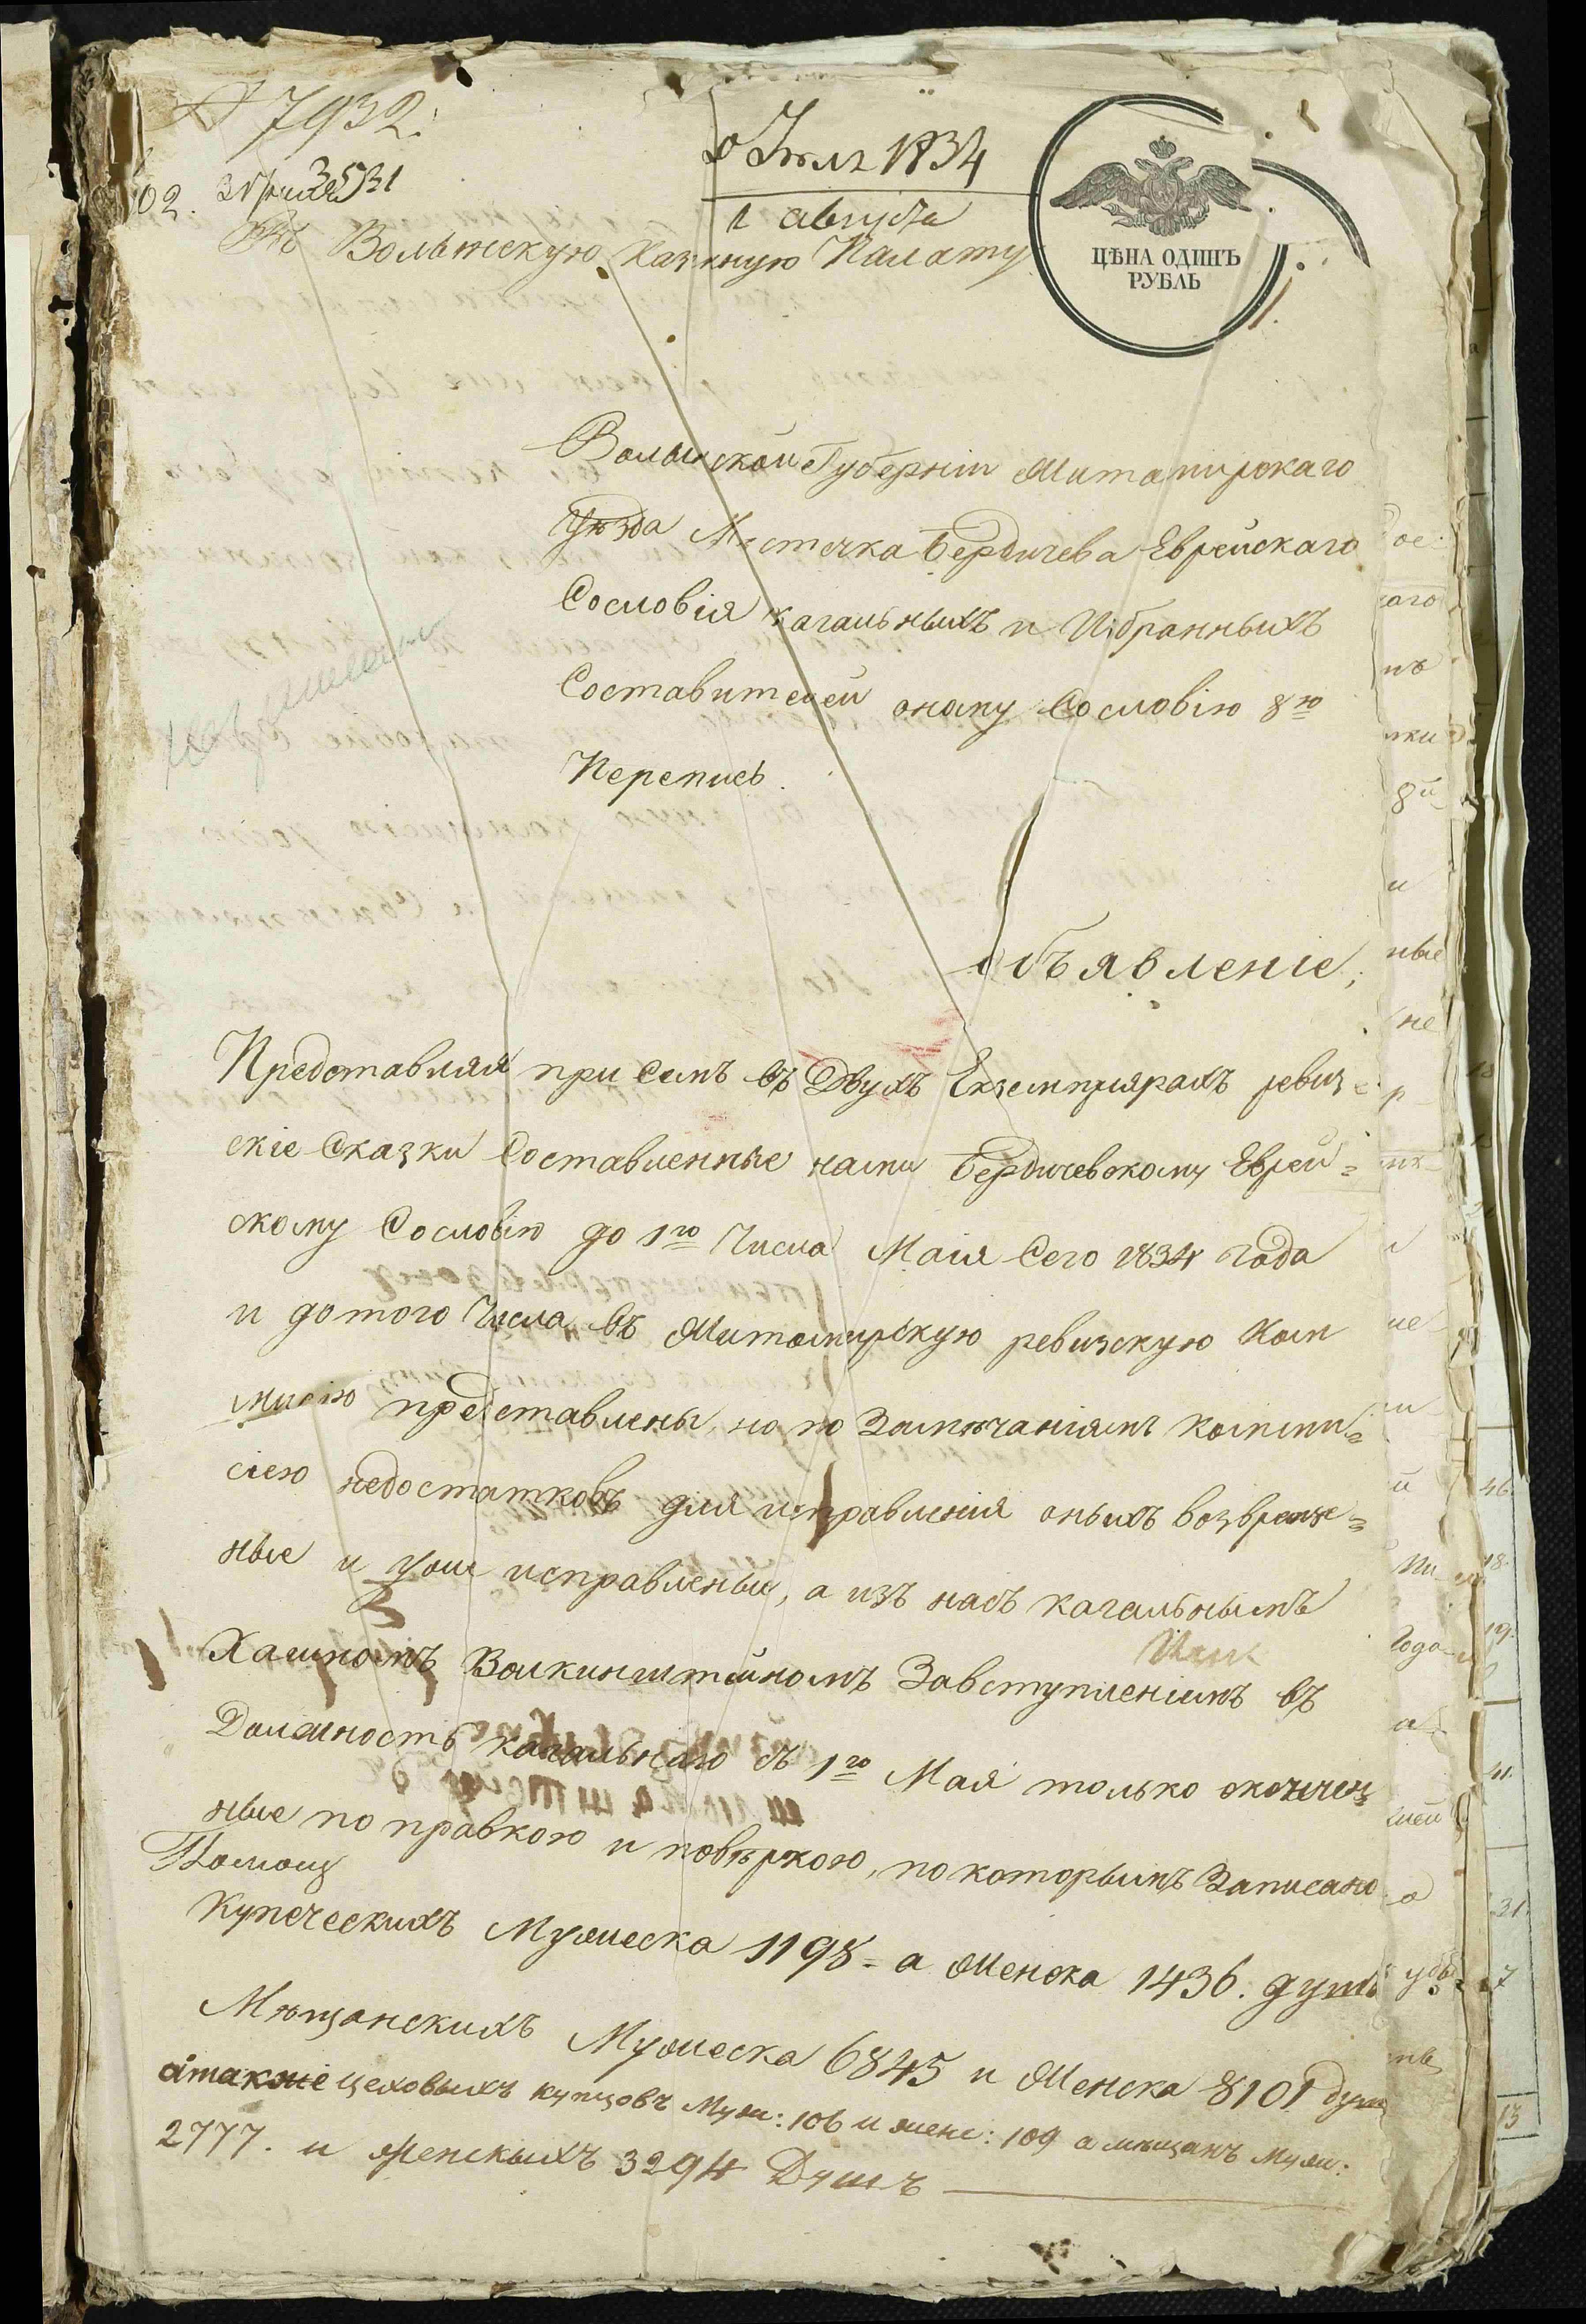 7932.
31 Июля 1834
3531
1 августа
02.
Въ Волынскую Казенную Палату
ЦѢНА ОДИНЪ
РУБЛЬ
1.
Волынской Губерніи Житомирскаго
Уѣзда Мѣстечка Бердичева Еврейскаго
Сословія кагальныхъ и Избранныхъ
Составителей оному Сословію 8ю
Перепись.
Объявленіе,
Представляя при семъ въ Двухъ Екземплярахъ ревиз
скіе Сказки Составленные нами Бердичевскому Еврей=
скому Сословію до 1го Числа Маія Сего 1834 года
и до того Числа въ Житомирскую ревизскую Ком
мисію представлены, но по Замѣчаніямъ коммис=
сіею недостатковъ для исправленія оныхъ возвращен=
ные и исправлены, а изъ насъ кагальнымъ
Хаимомъ Волкинштейномъ Завступленіемъ въ
Должность кагальнаго съ 1го Мая только окончен
ные по правкою и повѣркою, по которымъ Записано
Купеческихъ Мужеска 1198 = а Женска 1436. душъ
Мѣщанскихъ Мужеска 6845 и Женска 8101 душ
а также цеховыхъ купцовъ Муж: 106 и женс: 109 а мѣщанъ Муж:
2777. и Женскыхъ 3294 Душъ